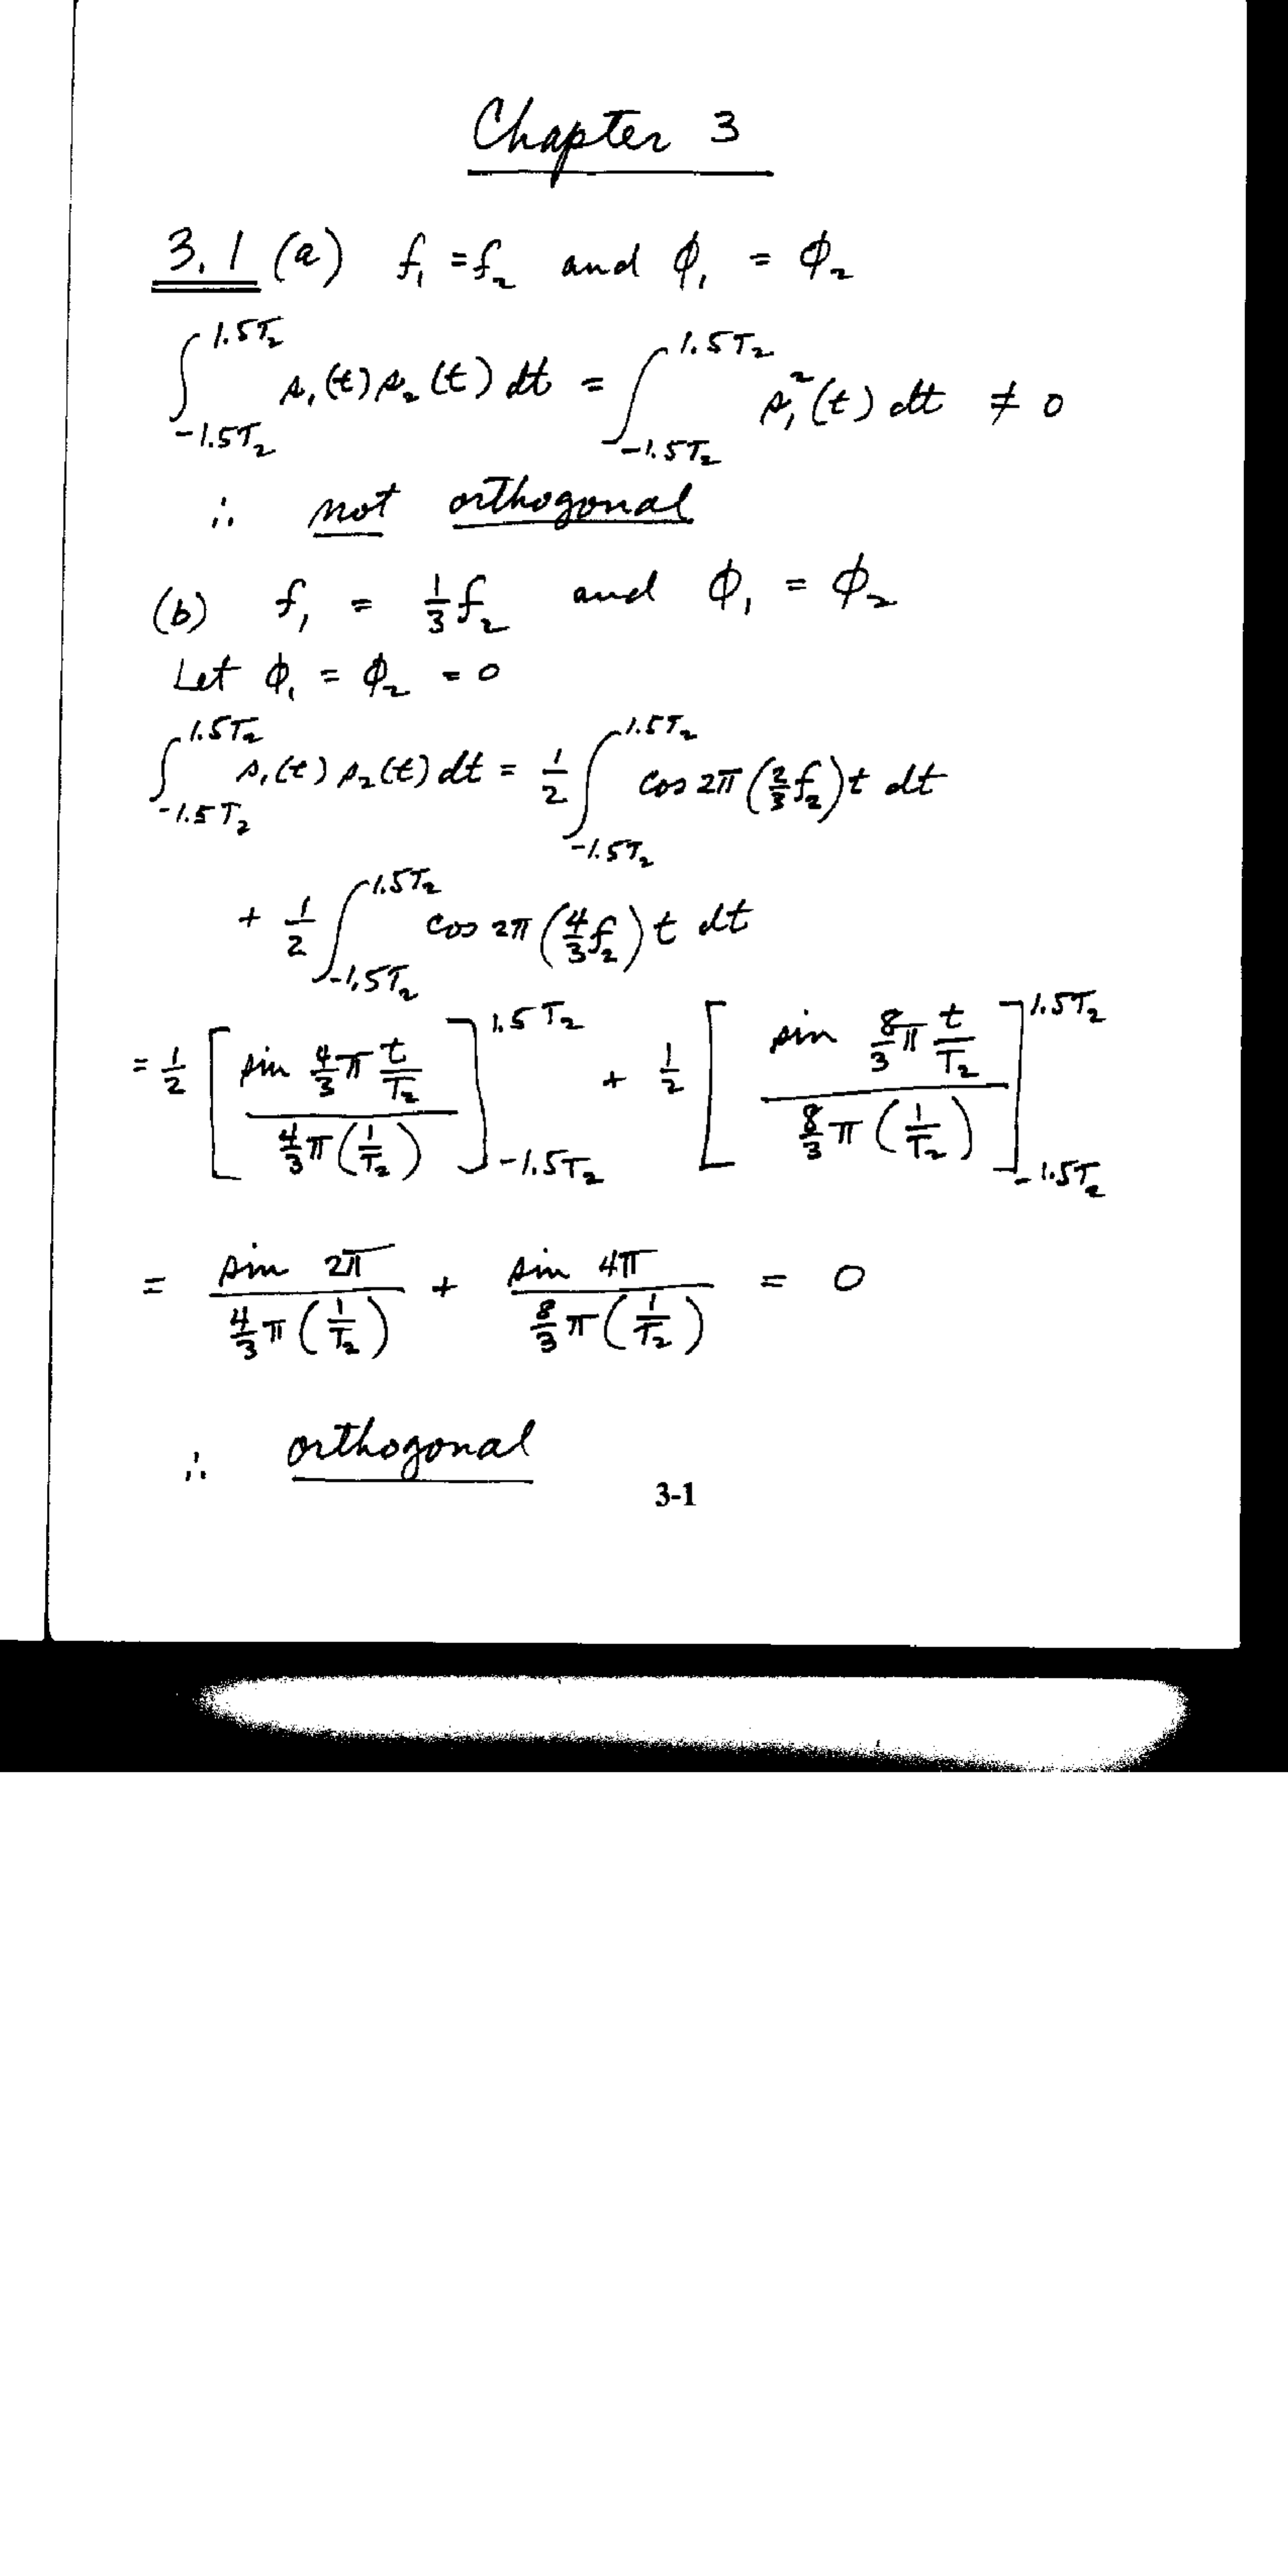 Chapter 3
3.1 (a) f₁ = f₂ and ϕ₁ = ϕ₂
∫_{-1.5T₂}^{1.5T₂} s₁(t) s₂(t) dt = ∫_{-1.5T₂}^{1.5T₂} s₁²(t) dt ≠ 0
∴ not orthogonal
(b) f₁ = 1/3 f₂ and ϕ₁ = ϕ₂
Let ϕ₁ = ϕ₂ = 0
∫_{-1.5T₂}^{1.5T₂} s₁(t) s₂(t) dt = 1/2 ∫_{-1.5T₂}^{1.5T₂} cos 2π (2/3 f₂) t dt
+ 1/2 ∫_{-1.5T₂}^{1.5T₂} cos 2π (4/3 f₂) t dt
= 1/2 [ (sin 4/3 π t/T₂) / (4/3 π (1/T₂)) ]_{-1.5T₂}^{1.5T₂} + 1/2 [ (sin 8/3 π t/T₂) / (8/3 π (1/T₂)) ]_{-1.5T₂}^{1.5T₂}
= (sin 2π) / (4/3 π (1/T₂)) + (sin 4π) / (8/3 π (1/T₂)) = 0
∴ orthogonal
3-1